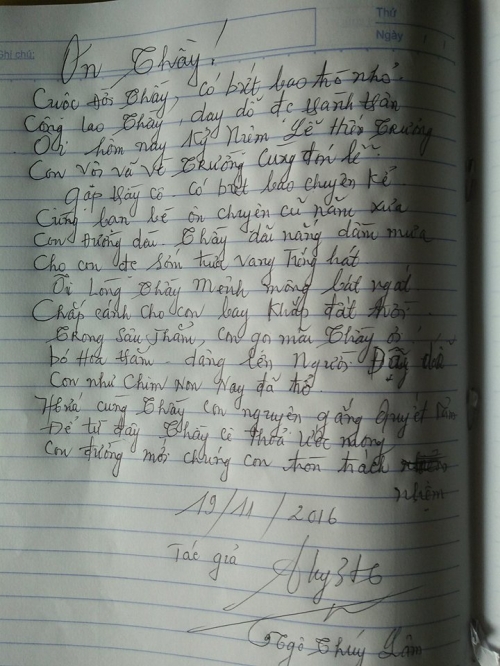 Thứ
Ngày
Ghi chú:
Ơn Thầy!
Cuộc đời Thầy, có biết bao trò nhỏ
Công lao Thầy, dạy dỗ đc thành
Ôi hôm nay kỷ niệm Lễ Hiến Trường
Con vội vã về Trường cùng đón lễ
Gặp thầy cô có biết bao chuyện kể
Cùng bạn bè ôn chuyện cũ năm xưa
Con đường dài Thầy dãi nắng dầm mưa
Cho con đc sớm tươi vang tiếng hát
Ôi Lòng Thầy Mênh mông bát ngát
Chắp cánh cho con bay khắp đất trời
Trong sâu thẳm, con gọi mãi Thầy ơi
bó Hoa dâng lên Người
Con như Chim non nay đã
Hứa cùng Thầy con nguyện gắng quyết tâm
Để từ đây Thầy cô thoả ước mong
Con đường mới chúng con tròn trách
nhiệm
19/11/2016
Tác giả
Ngô Thúy Lâm